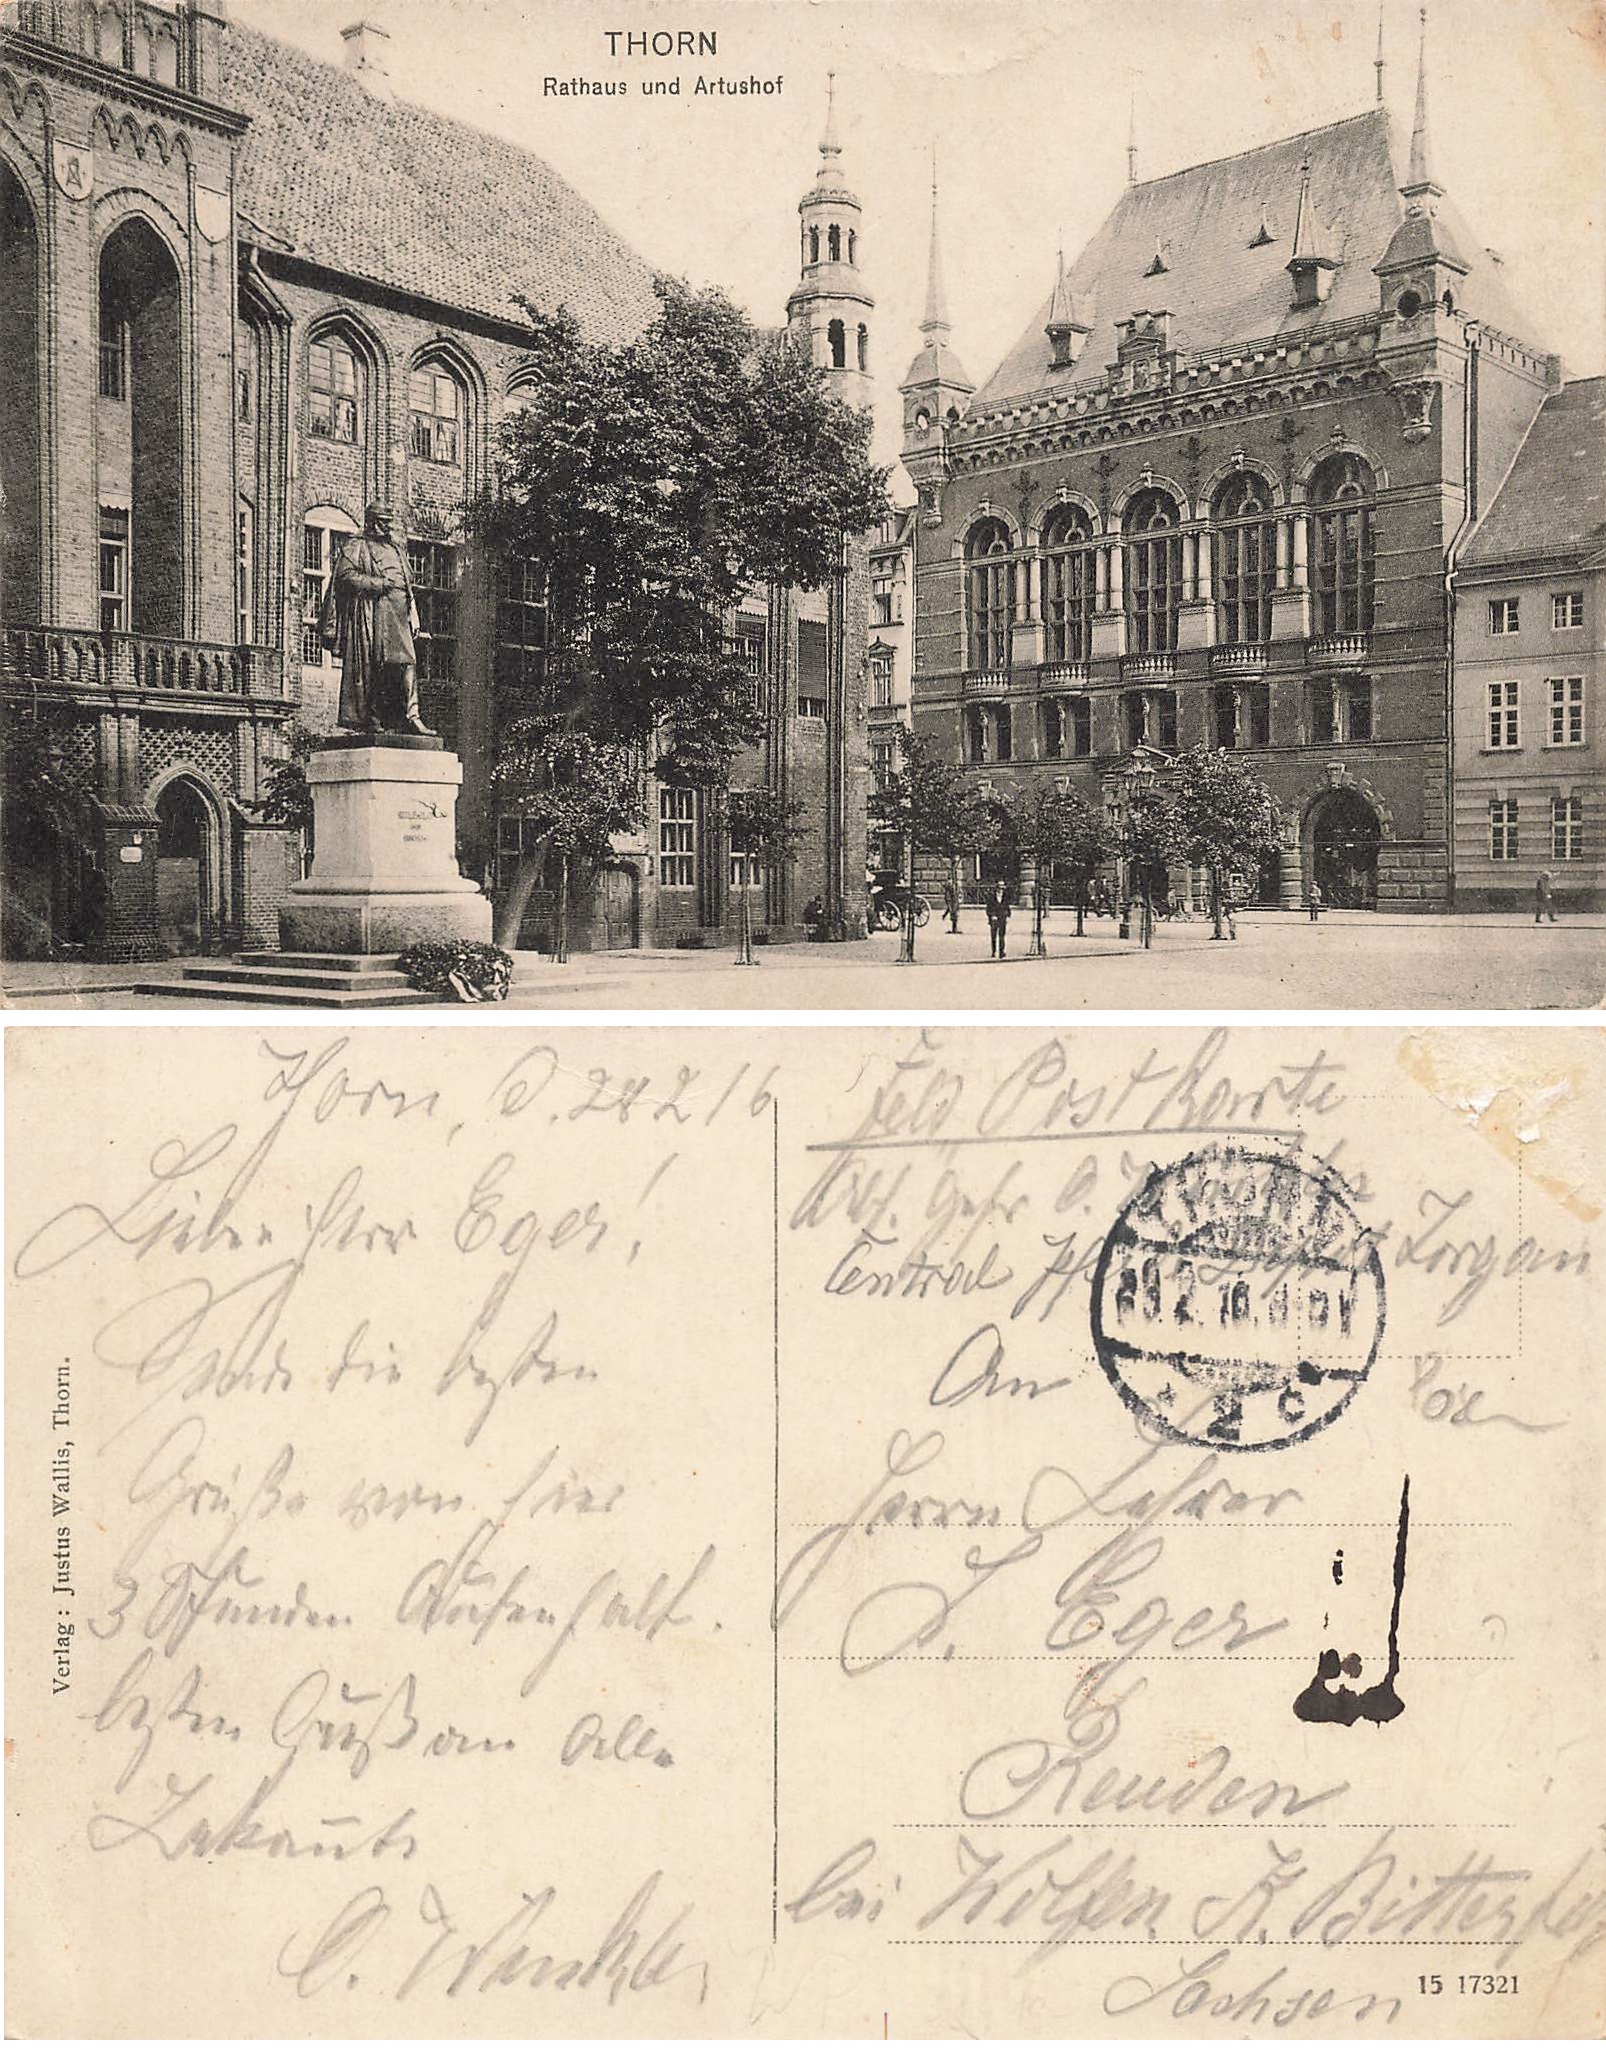 THORN
Rathaus und Artushof
Thorn, d. 28 2 16
Lieber Herr Eger!
Sende die besten
Grüße von hier
3 Stunden Aufenhalt.
besten Gruß an Alle
O. Winkler
Verlag: Justus Wallis, Thorn.
Feld Post Karte
Abs. Gefr O.
Central Torgau
An
Herrn Lehrer
Eger
Reuden
bei Wolfen K. Bitterfeld
Sachsen
THORN
2 c
15 17321